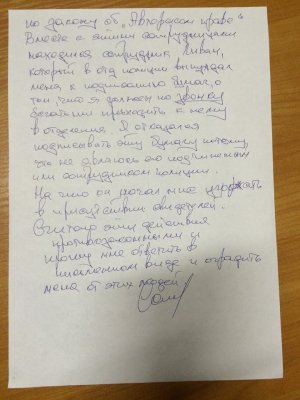 по закону об "Авторском праве"
Вместе с этими сотрудниками
находился сотрудник Ливан,
который в отд полиции вынуждал
меня к подписанию бумаг, о
том что я должен по звонку
бегать и приходить к нему
в отделение. Я отказался
подписывать эту бумагу потому
что не являюсь его подчиненным
или сотрудником полиции.
На что он начал мне угрожать
в присутствии свидетелей.
Считаю эти действия
противозаконными и
прошу мне ответить в
письменном виде и оградить
меня от этих людей